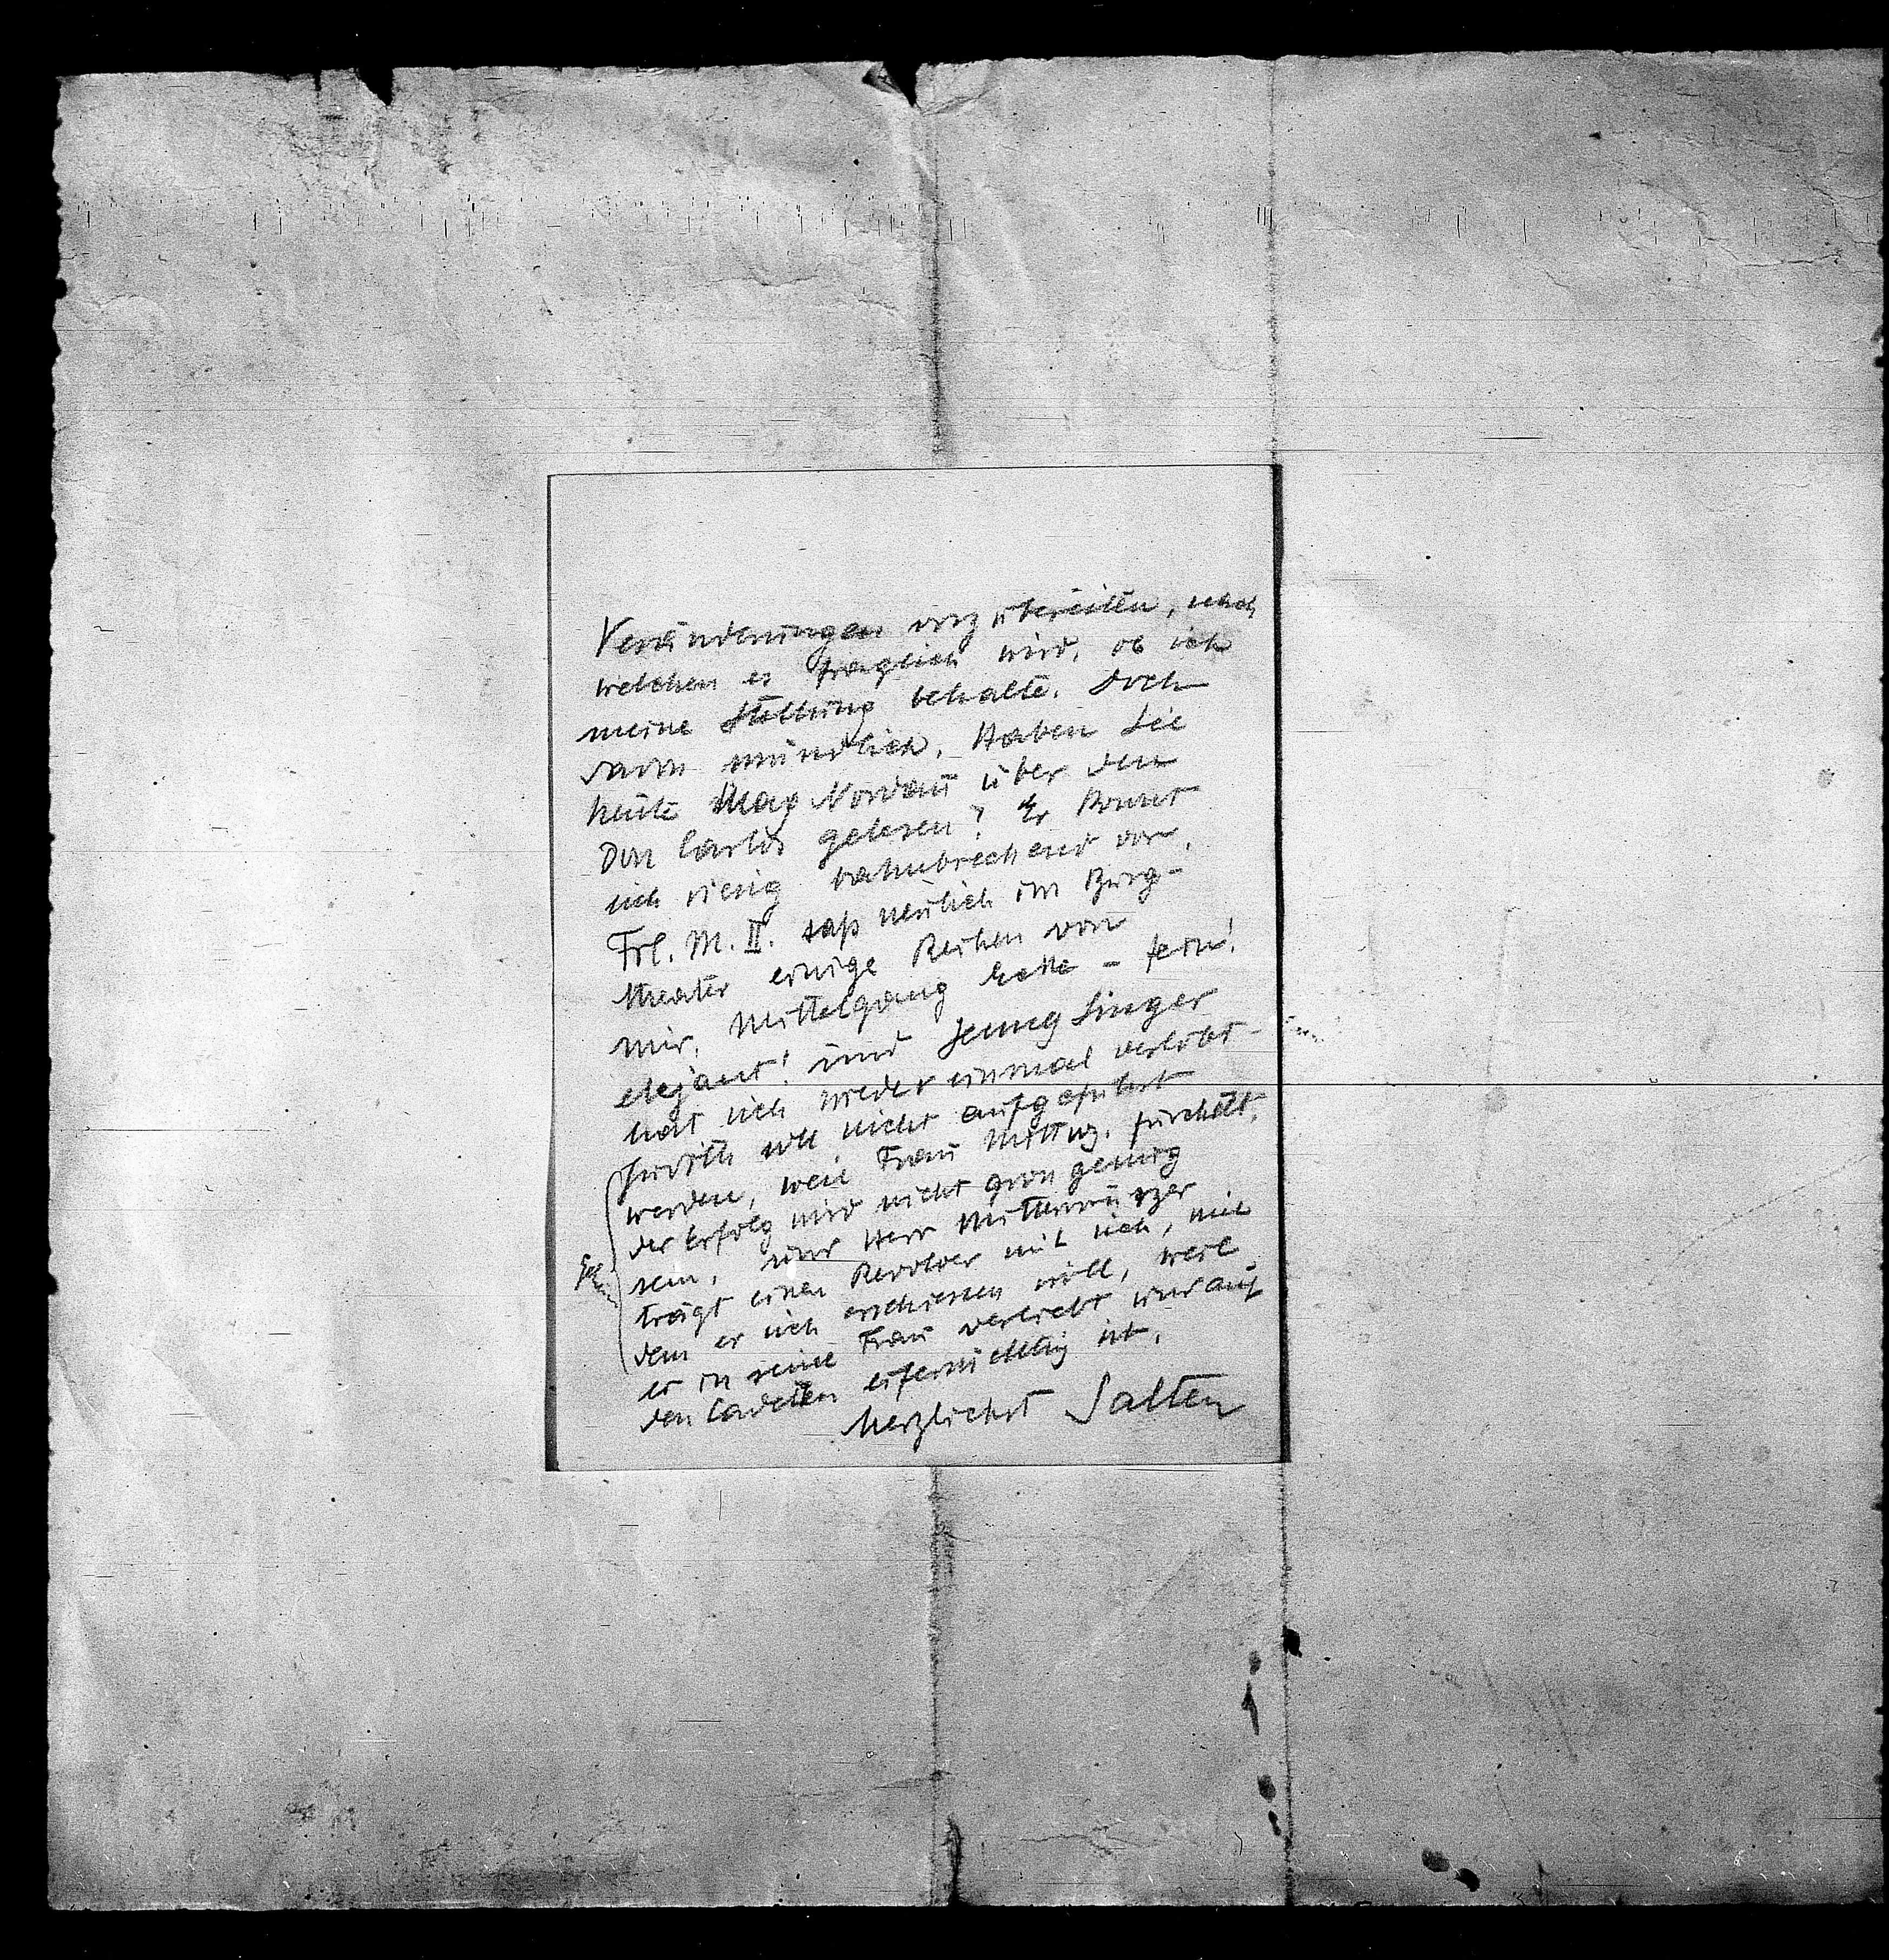 Veränderungen vorzubereiten, nach
welchen es fraglich wird, ob ich
meine Stellung behalte. Doch
davon mündlich. Haben Sie
heute Max Nordau über den
Don Carlos gelesen? Er kommt
sich riesig bahnbrechend vor.
Frl. M. II. saß neulich im Burg-
theater einige Reihen von
mir, Mittelgang Ecke – fein!
elejant! und Jenny Singer
hat sich wieder einmal verlobt –
Judith soll nicht aufgeführt
werden, weil Frau Mittwz. fürchtet,
der Erfolg wird nicht gross genug
sein, und Herr Mitterwurzer
trägt einen Revolver mit sich, mit
dem er sich erschiessen will, weil
er in seine Frau verliebt und auf
den Cadetten eifersüchtig ist.
Herzlichst Salten